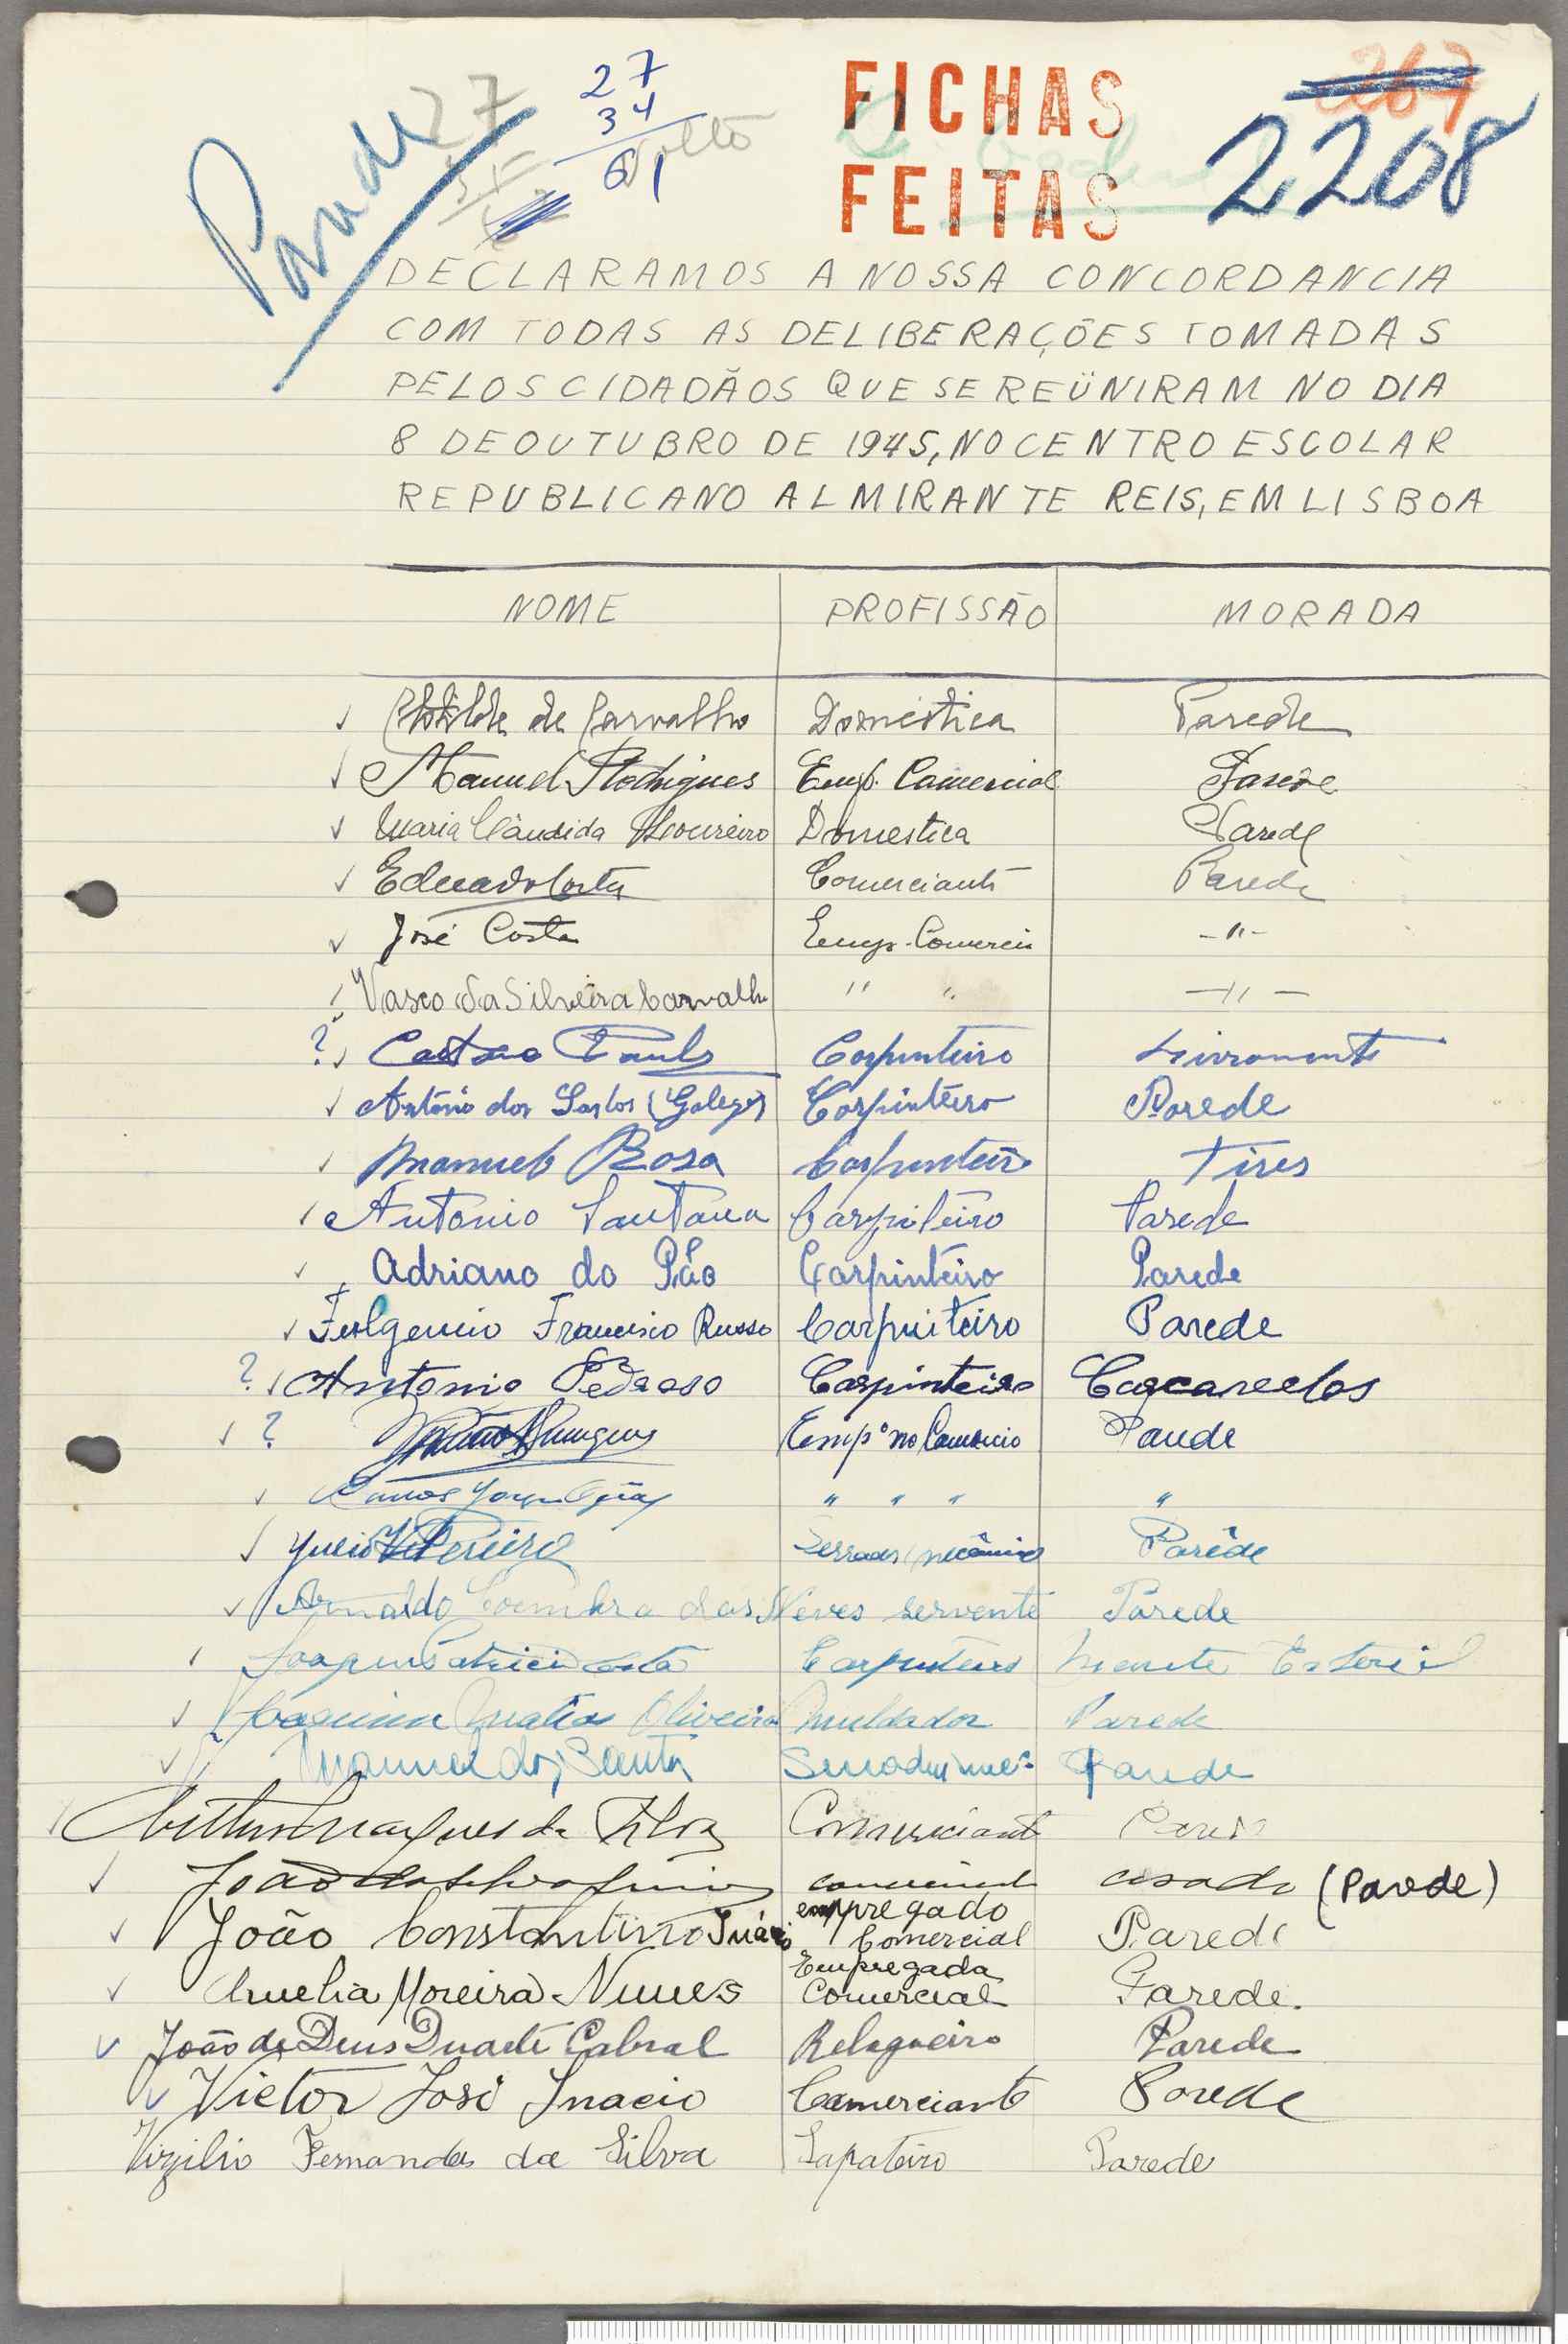 Parede
27
34
61
volto
FICHAS
FEITAS
267
2208
DECLARAMOS A NOSSA CONCORDANCIA
COM TODAS AS DELIBERAÇÕES TOMADAS
PELOS CIDADÃOS QUE SE REÜNIRAM NO DIA
8 DE OUTUBRO DE 1945, NO CENTRO ESCOLAR
REPUBLICANO ALMIRANTE REIS, EM LISBOA
NOME PROFISSÃO MORADA
Clotilde de Carvalho Doméstica Parede
Manuel Rodrigues Emp. Comercial Parede
Maria Cândida Loureiro Domestica Parede
Eduardo Costa Comerciante Parede
José Costa Emp. Comercio -"-
Vasco da Silveira Carvalho " " -"-
? Caetano Paulo Carpinteiro Livramento
António dos Santos (Galego) Carpinteiro Parede
Manuel Rosa Carpinteiro Tires
Antonio Santana Carpiteiro Parede
Adriano do Páo Carpinteiro Parede
Fulgencio Francisco Russo Carpinteiro Parede
? Antonio Pedroso Carpinteiro Carcavelos
? Empº no Comércio Parede
" " " "
Julio Pereira Serrador mecânico Parêde
Arnaldo Coimbra das Neves servente Parede
Joaquim Costa Carpinteiro Monte Estoril
Joaquim Matias Oliveira Muldador Parede
Manuel dos Santos Parede
Marques da Silva Comerciante Parede
João da Silva comerciante casado (Parede)
João Constantino Inácio empregado Comercial Parede
Amelia Moreira Nunes Empregada Comercial Parede.
João de Deus Duarte Cabral Relogoeiro Parede
Victor José Inacio Comerciante Parede
Virgilio Fernandes da Silva Sapateiro Parede